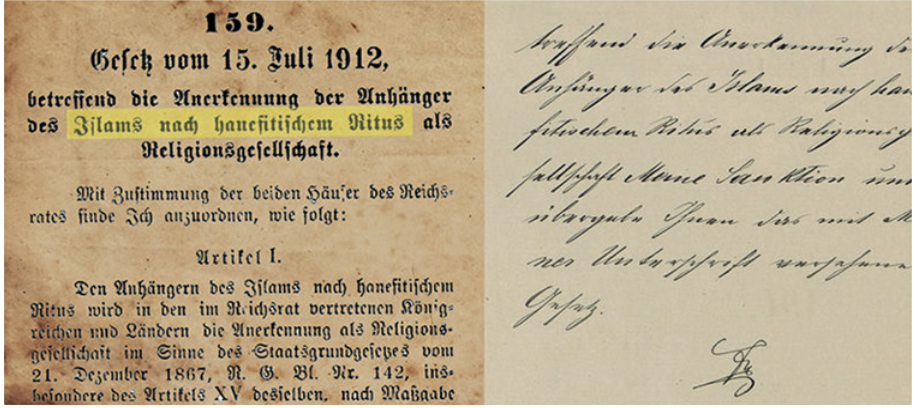 159.
Gesetz vom 15. Juli 1912,
betreffend die Anerkennung der Anhänger
des Islams nach hanefitischem Ritus als
Religionsgesellschaft.
Mit Zustimmung der beiden Häuser des Reichs-
rates finde Ich anzuordnen, wie folgt:
Artikel I.
Den Anhängern des Islams nach hanefitischem
Ritus wird in den im Reichsrat vertretenen König-
reichen und Ländern die Anerkennung als Religions-
gesellschaft im Sinne des Staatsgrundgesetzes vom
21. Dezember 1867, R. G. Bl. Nr. 142, ins-
besondere des Artikels XV desselben, nach Maßgabe
treffend die Anerkennung de
Anhänger des Islams nach han
fitischem Ritus als Religionsg
sellschaft Meine Sanktion und
übergebe Ihnen das mit M
ner Unterschrift versehene
Gesetz.